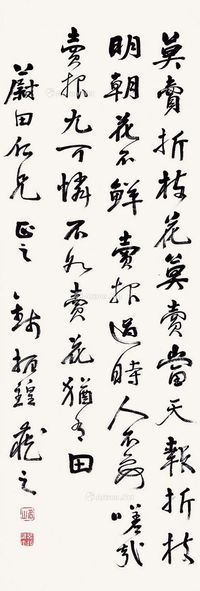 莫賣折枝花莫賣當天報折枝
明朝花不鮮賣报過時人不要嗟哉
賣报尤可憐不如賣花猶有田
蔚田仁兄正之 錢振鍠